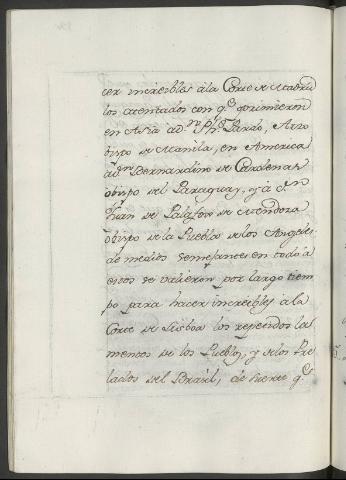 cer increibles à la Corte de Madrid
los atentados con q.e oprimieron
en Asia à d.n Ph.e Pardo, Arzo
bispo de Manila, en America
à d.n Bernardino de Cardenas
obispo del Paraguay, y à d.n
Juan de Palafox de Mendoza
obispo de la Puebla de los Angeles
de medios semejantes en todo à
estos se valieron por largo tiem
po para hacer increibles à la
Corte de Lisboa los repetidos la
mentos de los Pueblos, y de los Pre
lados del Brasil, de suerte q.e